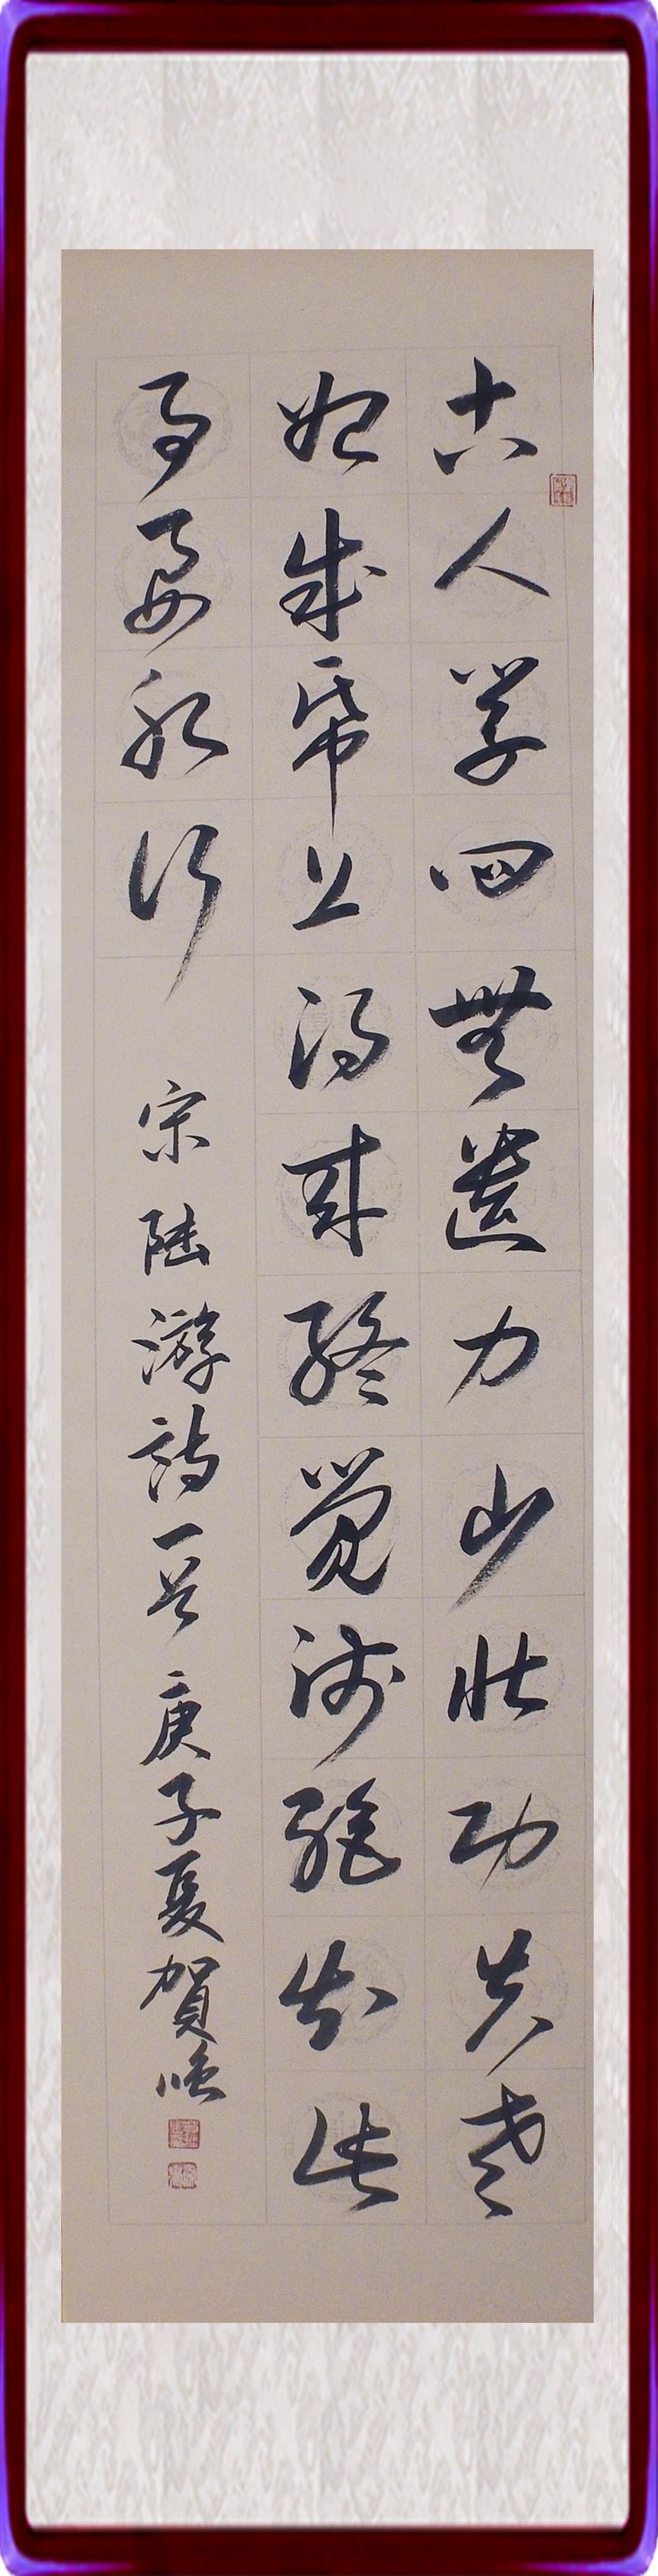 古人学问無遗力少壮功夫老
始成帋上得来终觉浅绝知此
事要躬行 宋陆游詩一首 庚子夏賀